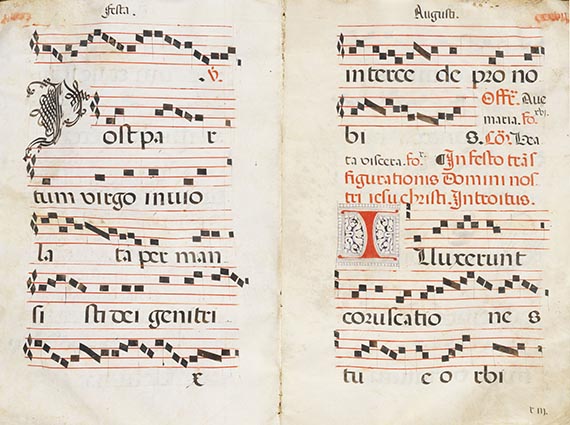 Festa.
℣.
Post pa r
tum virgo inuio
la ta per man
si sti dei genitri
x
Augusti.
interce de pro no
bi s. Offr̃. Aue
maria. fo. xbi.
Cõr. Bea
ta viscera. fo. ¶ In festo trãs
figurationis Domini nos
tri iesu christi. Introitus.
Illuxerunt
coruscatio ne s
tu e o rbi